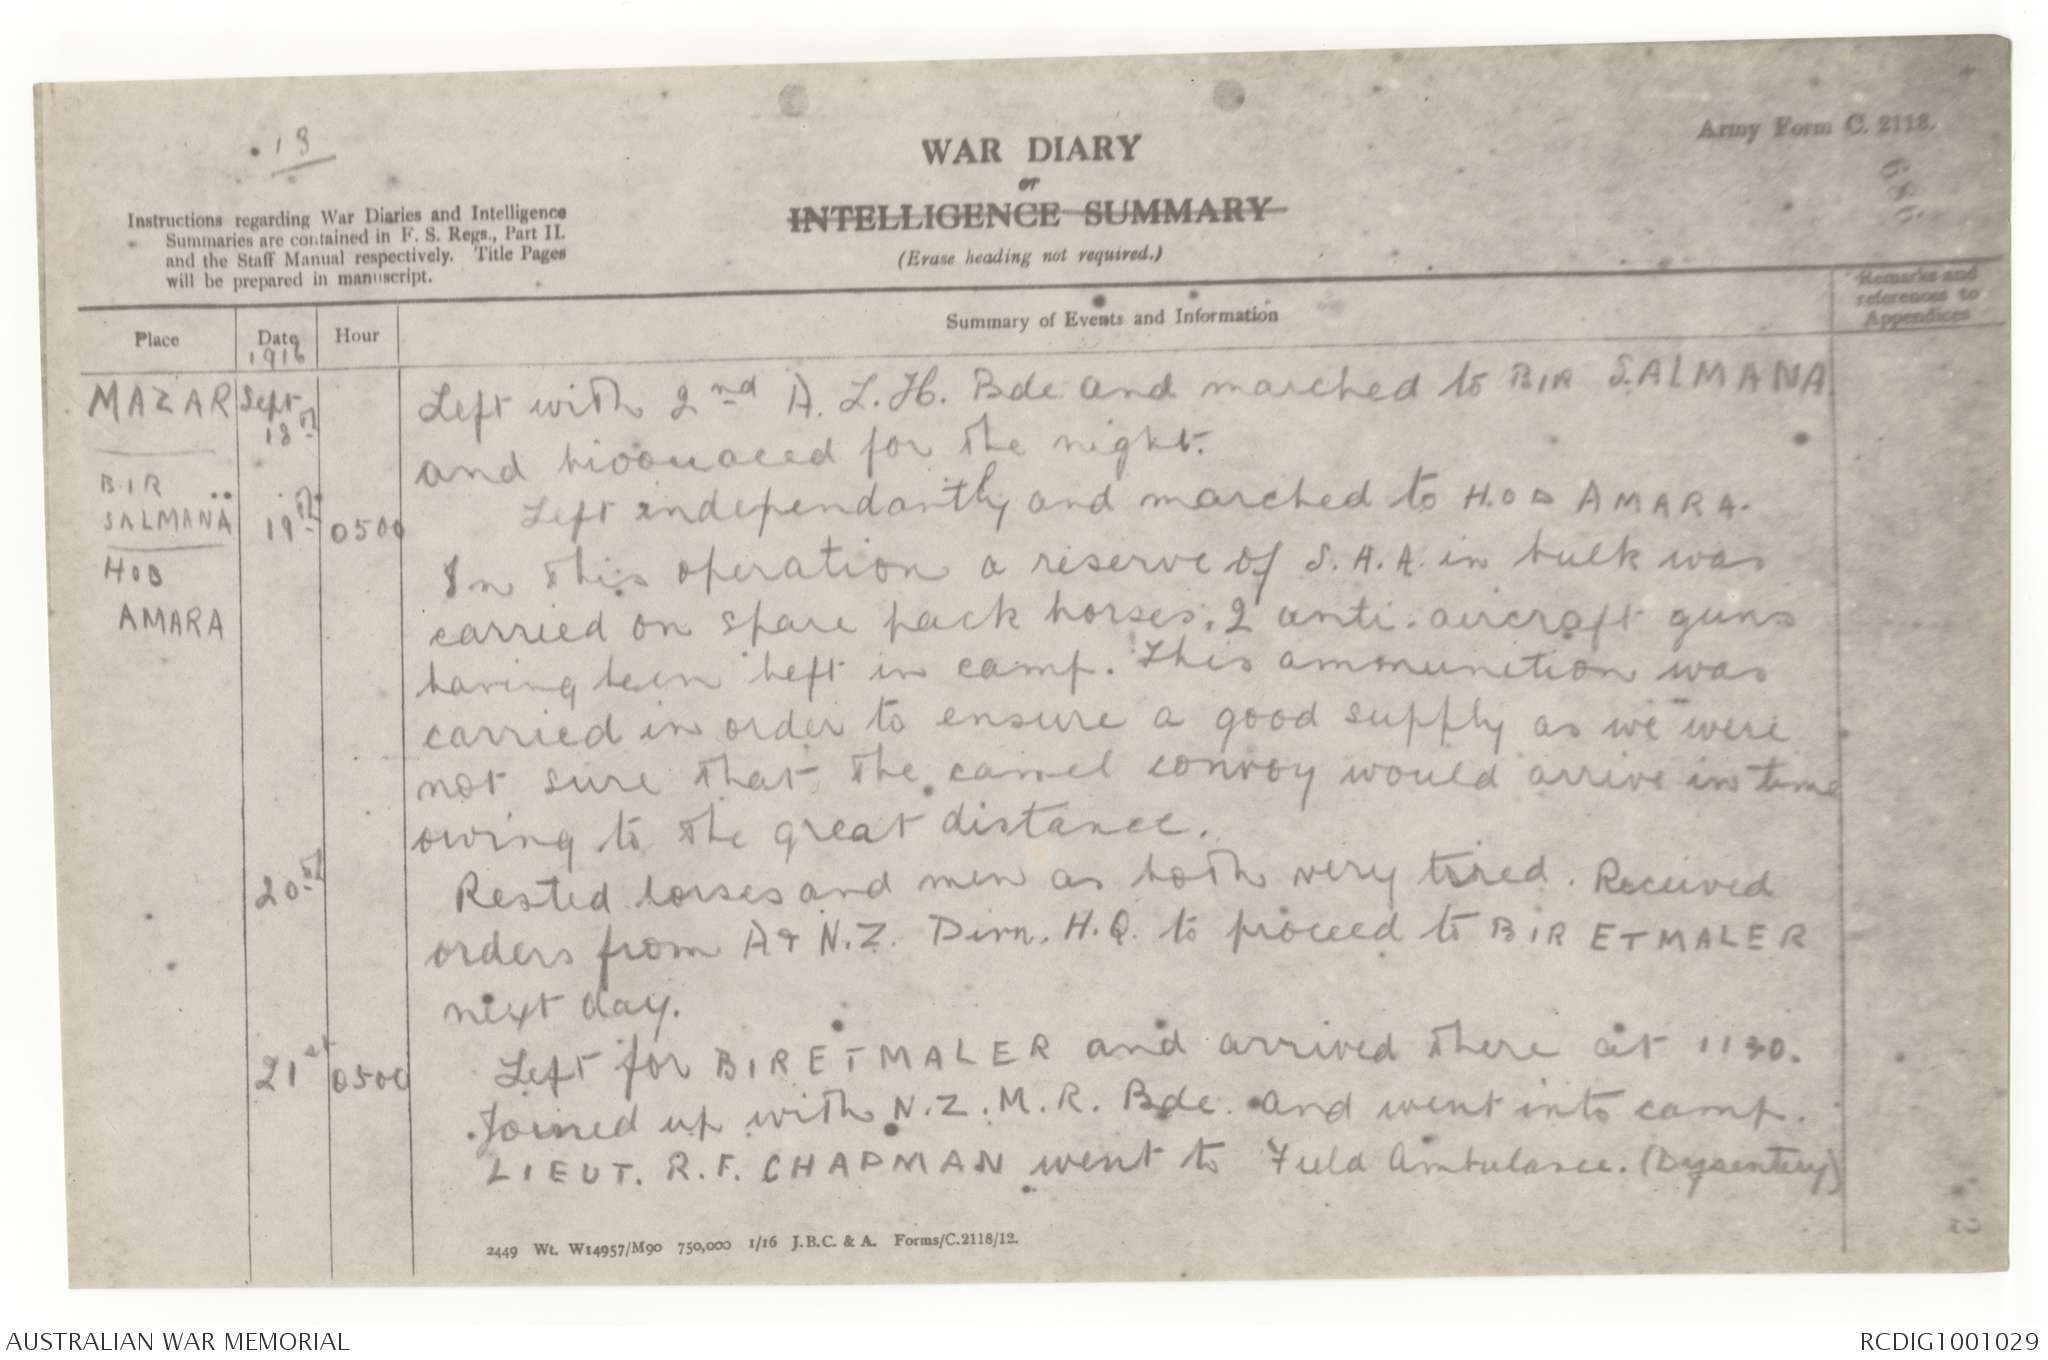 13
Army Form C. 2118.
WAR DIARY
or
INTELLIGENCE SUMMARY
(Erase heading not required.)
Instructions regarding War Diaries and Intelligence
Summaries are contained in F. S. Regs., Part II.
and the Staff Manual respectively. Title Pages
will be prepared in manuscript.
Place
Date
1916
Hour
Summary of Events and Information
Remarks and
references to
Appendices
MAZAR Sept Left with 2nd A. L. H. Bde and marched to BIR SALMANA
18th and bivouaced for the night.
BIR
SALMANA 19th 0500 Left independantly and marched to HOD AMARA.
HOD In this operation a reserve of S.A.A. in bulk was
AMARA carried on spare pack horses, 2 anti-aircraft guns
having been left in camp. This ammunition was
carried in order to ensure a good supply as we were
not sure that the camel convoy would arrive in time
owing to the great distance.
20th Rested horses and men as both very tired. Received
orders from A & N.Z. Divn. H.Q. to proceed to BIR ETMALER
next day.
21st 0500 Left for BIR ETMALER and arrived there at 1130.
Joined up with N.Z.M.R. Bde. and went into camp.
LIEUT. R.F. CHAPMAN went to Field Ambulance. (Dysentery)
2449 Wt. W14957/M90 750,000 1/16 J.B.C. & A. Forms/C.2118/12.
AUSTRALIAN WAR MEMORIAL
RCDIG1001029